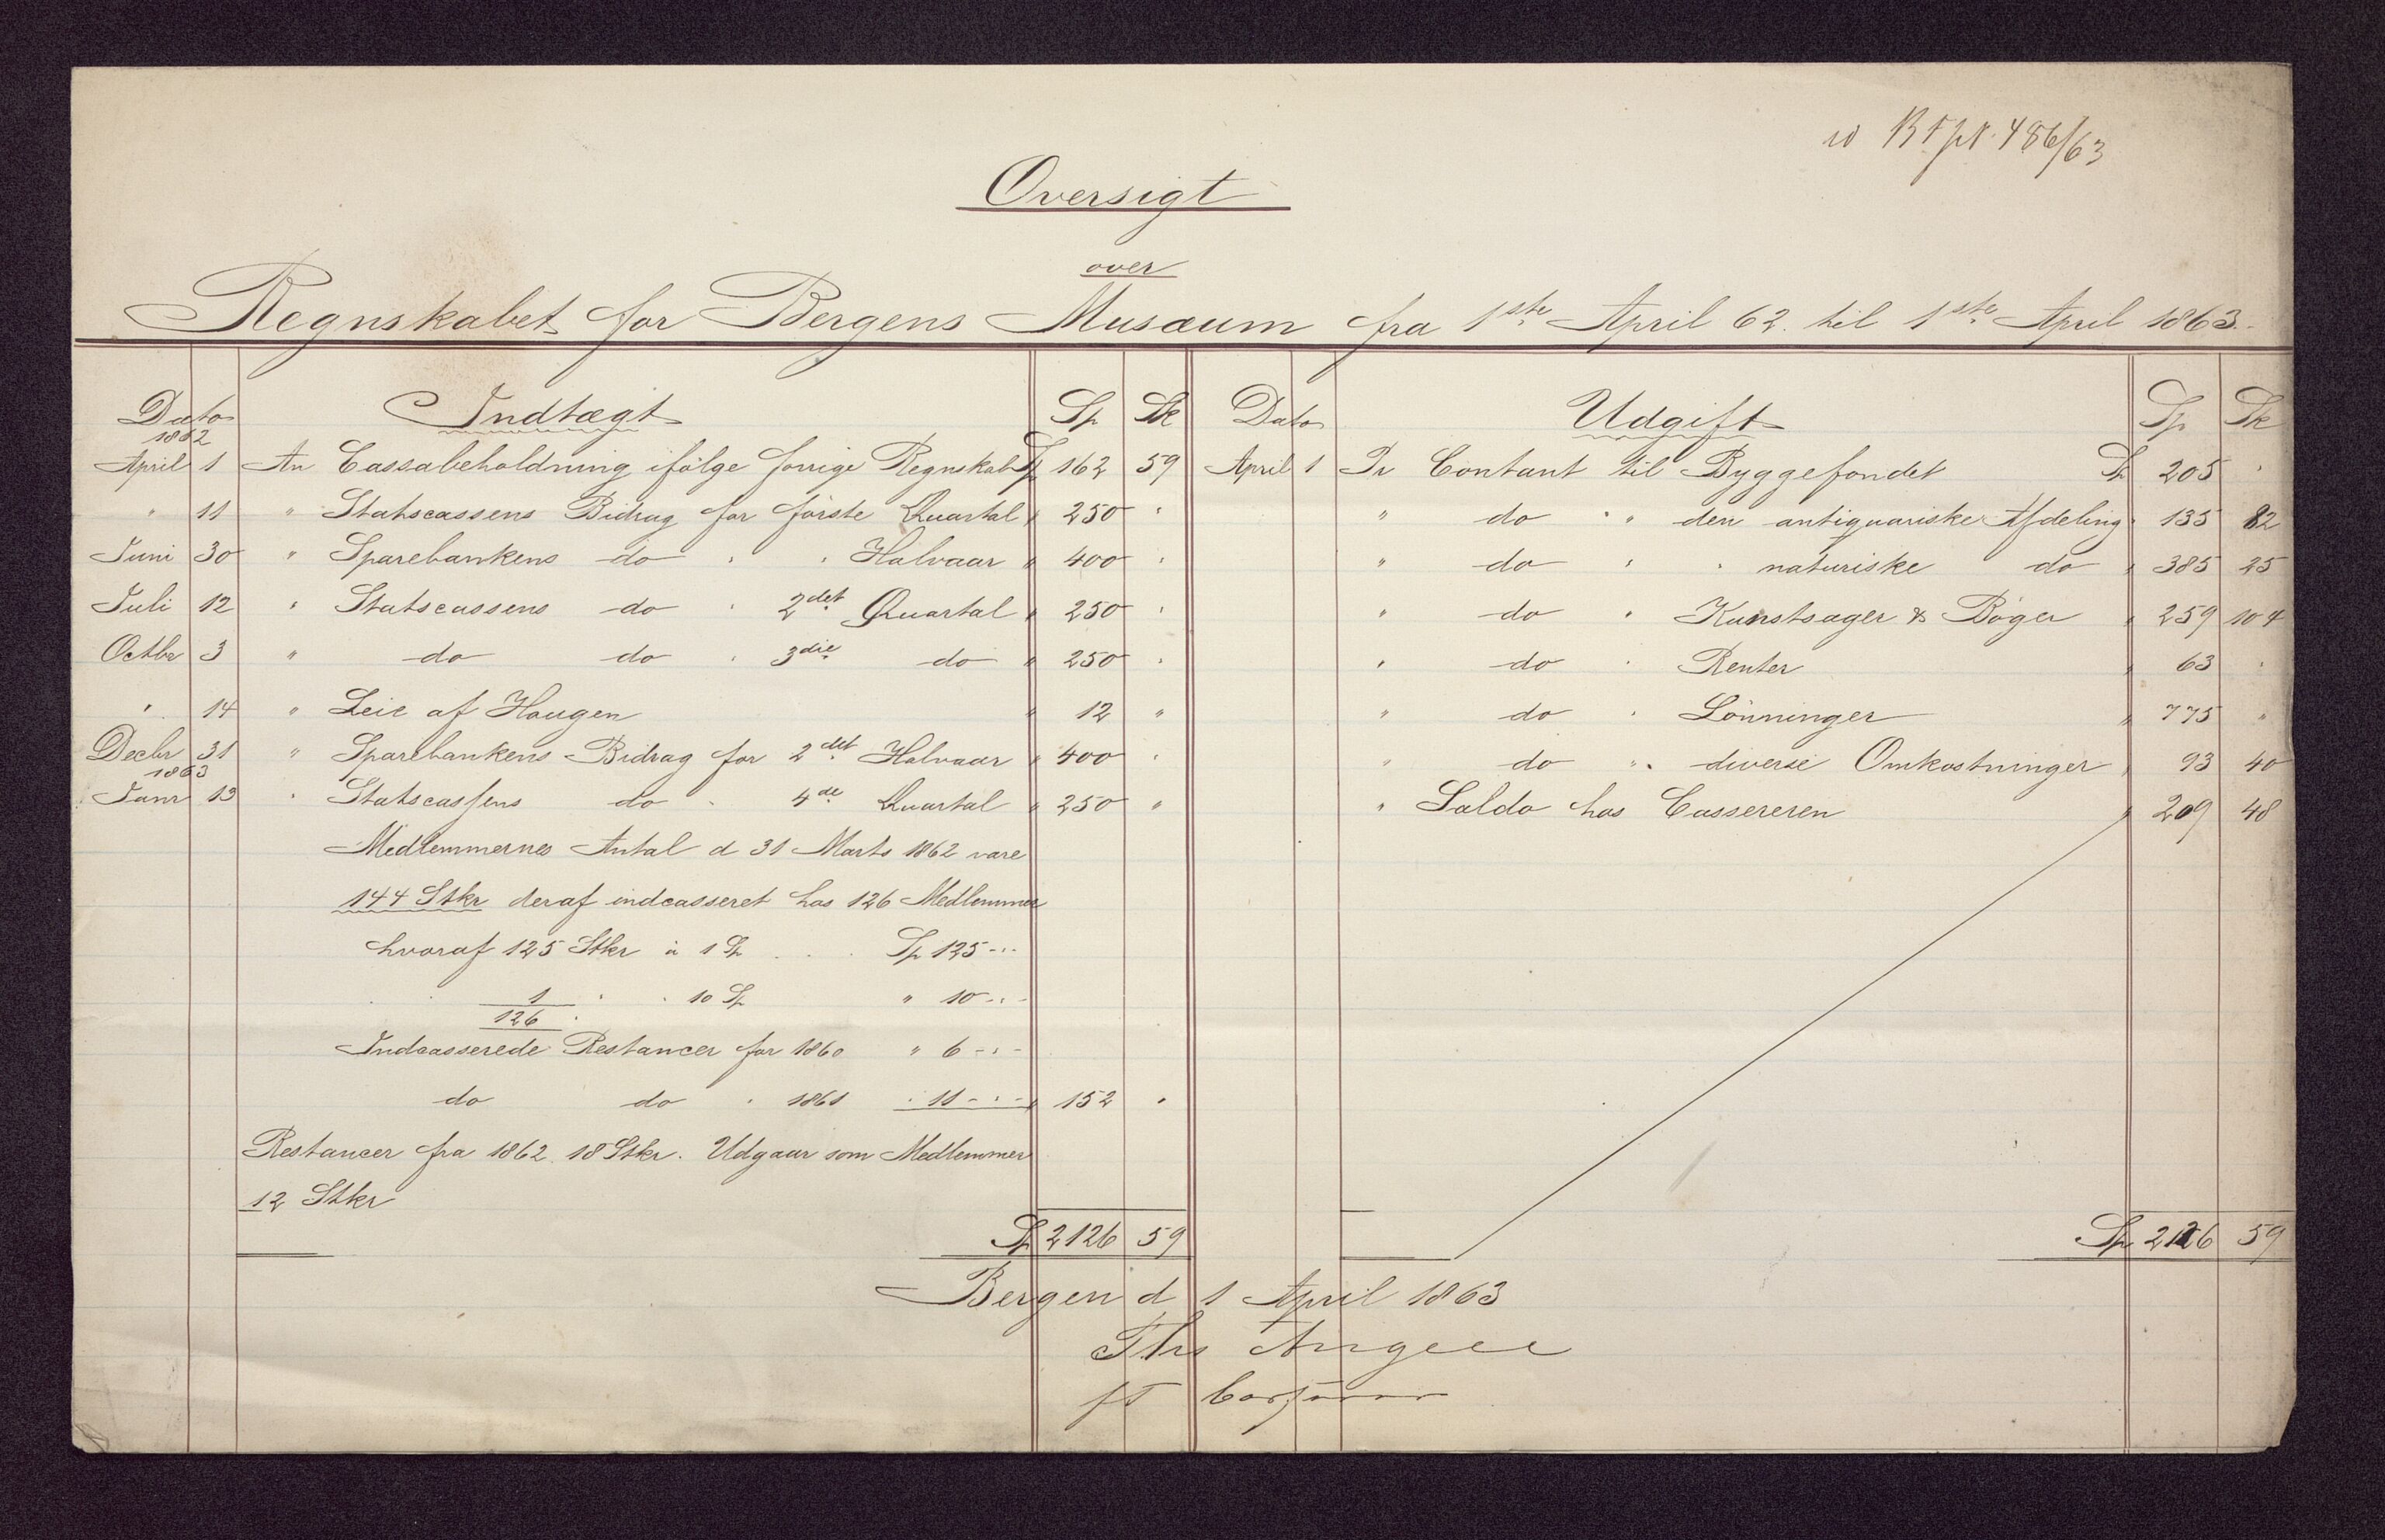 486/63
Oversigt
over
Regnskabet for Bergens Musæum fra 1ste April 62 til 1ste April 1863.
Dato Indtægt Sp Sk
1862
April 1 An Cassabeholdning ifølge forrige Regnskab Sp 162 59
" 11 " Statscassens Bidrag for første Quartal " 250 "
Juni 30 " Sparebankens do " " Halvaar " 400 "
Juli 12 " Statscassens do " 2det Quartal " 250 "
Octbr 3 " do do " 3die do " 250 "
" 14 " Leie af Haugen " 12 "
Decbr 31 " Sparebankens Bidrag for 2det Halvaar " 400 "
1863
Janr 13 " Statscassens do " 4de Quartal " 250 "
Medlemmernes Antal d 31 Marts 1862 vare
144 Stkr deraf indcasseret hos 126 Medlemmer
hvoraf 125 Stkr à 1 Sp . . . Sp 125 - " -
1 " " 10 Sp " 10 - " -
126
Indcasserede Restancer for 1860 " 6 - " -
do do " 1861 " 11 - " - " 152 "
Restancer fra 1862 18 Stkr. Udgaar som Medlemmer
12 Stkr
Sp 2126 59
Dato Udgift Sp Sk
April 1 Pr Contant til Byggefondet Sp 205 "
" do " " den antiquariske Afdeling " 135 82
" do " " naturiske do " 385 25
" do " Kunstsager & Bøger " 259 104
" do " Renter " 63 "
" do " Lønninger " 775 "
" do " " diverse Omkostninger " 93 40
" Saldo hos Cassereren " 209 48
Sp 2126 59
Bergen d 1 April 1863
Ths Angell